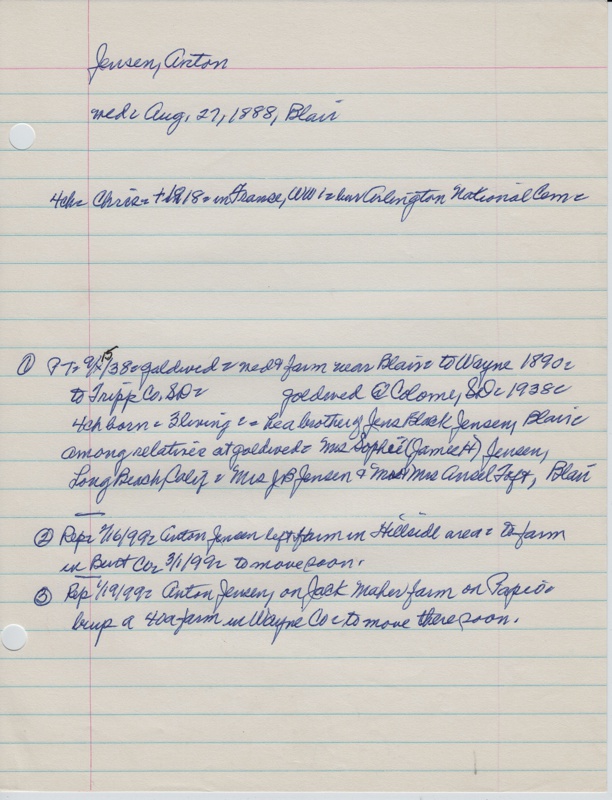 Jensen, Anton
wed= Aug. 27, 1888, Blair
4ch= Chris= + 1918= in France, WW1= bur Arlington National Cem=
① PT= 9/15/38= goldwed= wed & farm near Blair= to Wayne 1890=
to Tripp Co. SD= goldwed @ Colome, SD= 1938=
4ch born= 3 living= = he a brother of Jens Black Jensen, Blair=
among relatives at goldwed= Mrs Sophie (Jamie H) Jensen,
Long Beach Calif= Mrs JB Jensen & Mrs Ansel Toft, Blair
② Rep= 2/16/99= Anton Jensen left farm in Hillside area= to farm
in Burt Co= 3/1/99= to move soon.
③ Rep 1/19/99= Anton Jensen, on Jack Maher farm on Papio=
buys a 40a farm in Wayne Co= to move there soon.